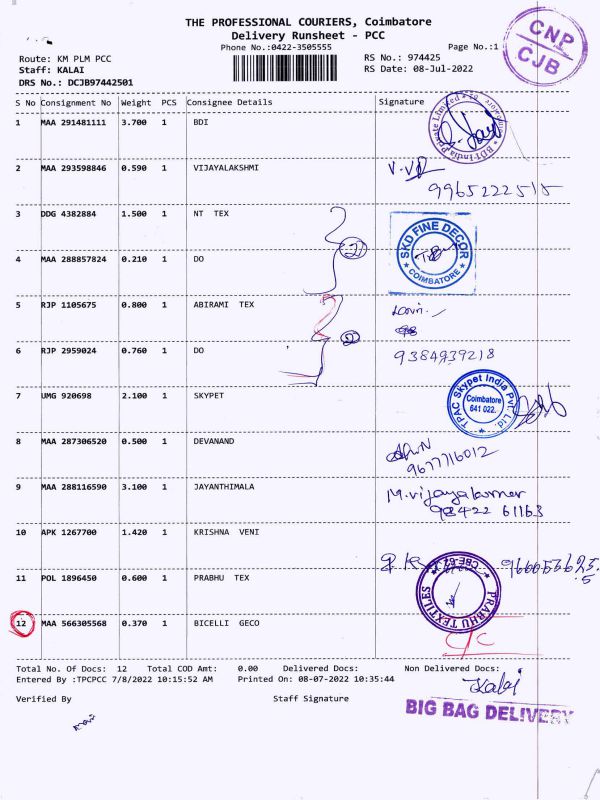 THE PROFESSIONAL COURIERS, Coimbatore
Delivery Runsheet - PCC
Phone No.:0422-3505555 Page No.:1
CNP
CJB
Route: KM PLM PCC RS No.: 974425
Staff: KALAI RS Date: 08-Jul-2022
DRS No.: DCJB97442501
S No Consignment No Weight PCS Consignee Details Signature
1 MAA 291481111 3.700 1 BDI
BDI India Private Limited
2 MAA 293598846 0.590 1 VIJAYALAKSHMI
9965222515
3 DDG 4382884 1.500 1 NT TEX
SKD FINE DECOR
COIMBATORE
4 MAA 288857824 0.210 1 DO
2
5 RJP 1105675 0.800 1 ABIRAMI TEX
2
6 RJP 2959024 0.760 1 DO
9384939218
7 UMG 920698 2.100 1 SKYPET
TPAC Skypet India Pvt. Ltd.
Coimbatore
641 022.
8 MAA 287306520 0.500 1 DEVANAND
9677716012
9 MAA 288116590 3.100 1 JAYANTHIMALA
M.vijayakumar
98422 61163
10 APK 1267700 1.420 1 KRISHNA VENI
11 POL 1896450 0.600 1 PRABHU TEX
PRABHU TEXTILES
12 MAA 566305568 0.370 1 BICELLI GECO
Total No. Of Docs: 12 Total COD Amt: 0.00 Delivered Docs: Non Delivered Docs:
Entered By :TPCPCC 7/8/2022 10:15:52 AM Printed On: 08-07-2022 10:35:44
Kalai
Verified By Staff Signature
BIG BAG DELIVERY